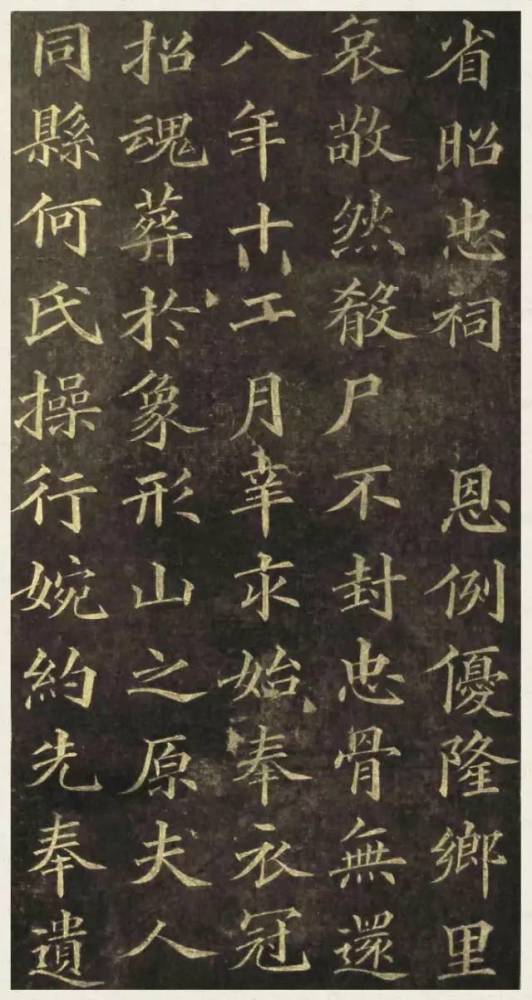 省昭忠祠 恩例優隆鄉里
哀敬然殽尸不封忠骨無還
八年十二月辛未始奉衣冠
招魂葬於象形山之原夫人
同縣何氏操行婉約先奉遺